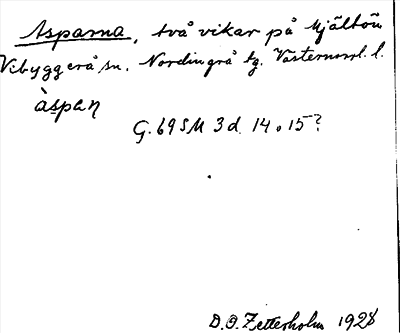 Asparna, två vikar på Mjältön
Vibyggerå sn. Nordingrå tg. Västernorrl. l.
àspaɳ
G. 69 SM 3 d. 14 o 15?
D. O. Zetterholm 1928